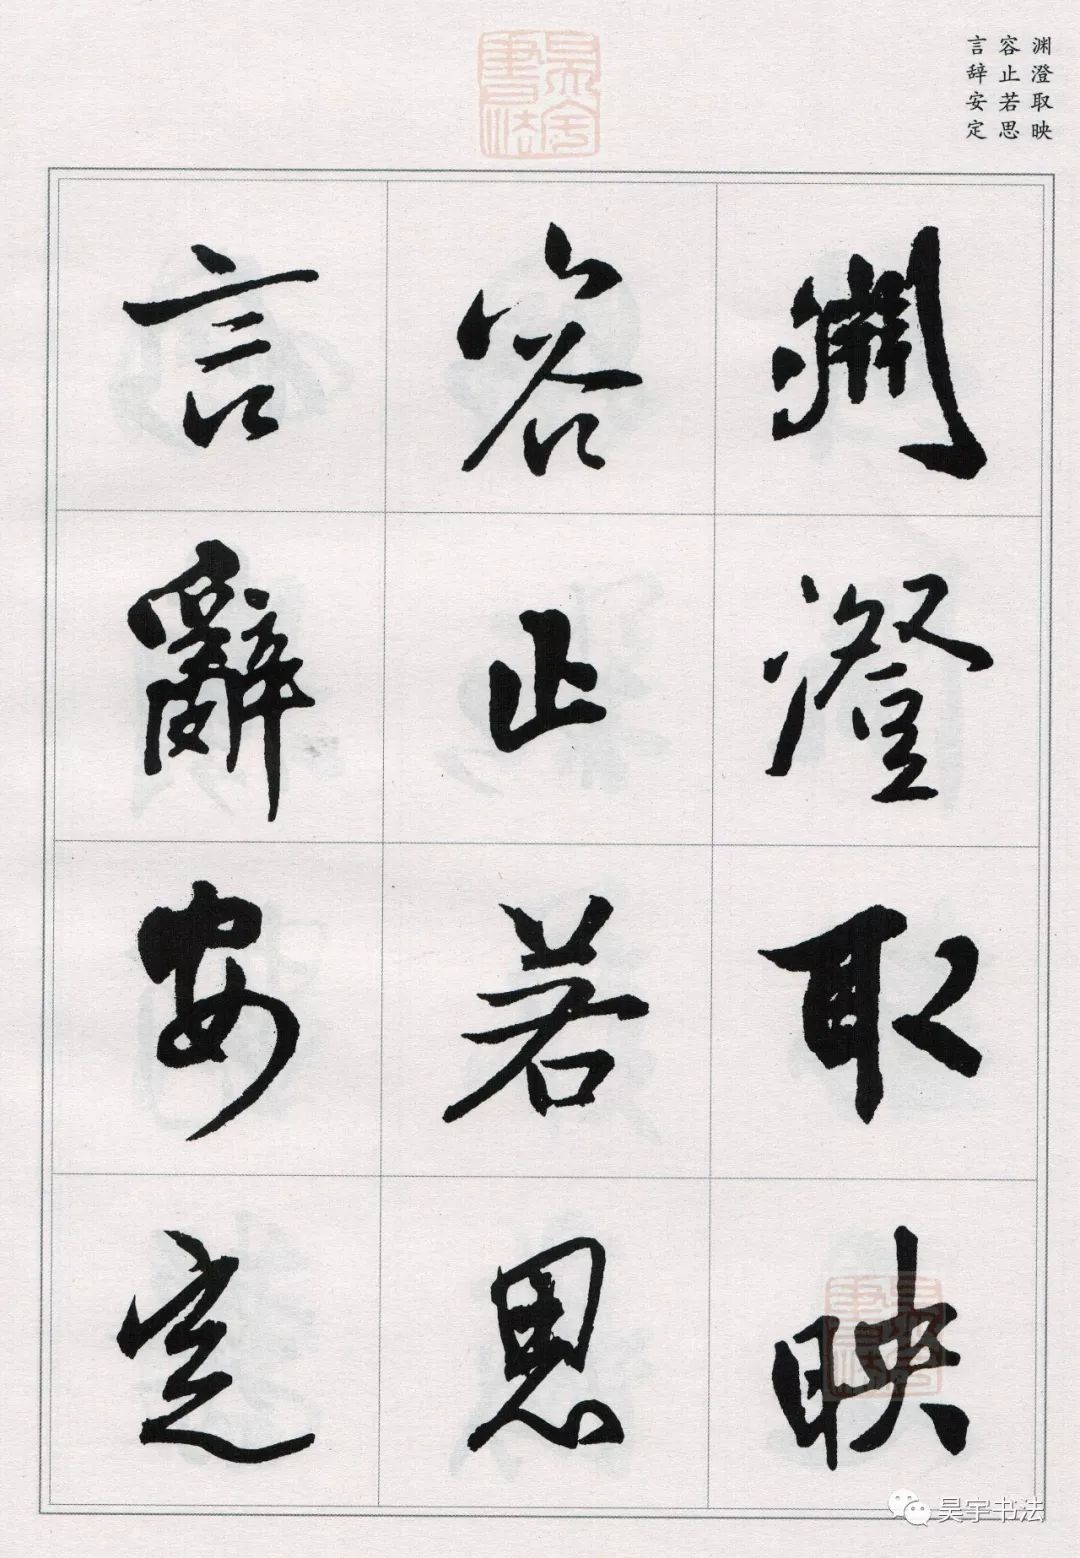 渊澄取映
容止若思
言辞安定
淵澄取映
容止若思
言辭安定
昊宇书法